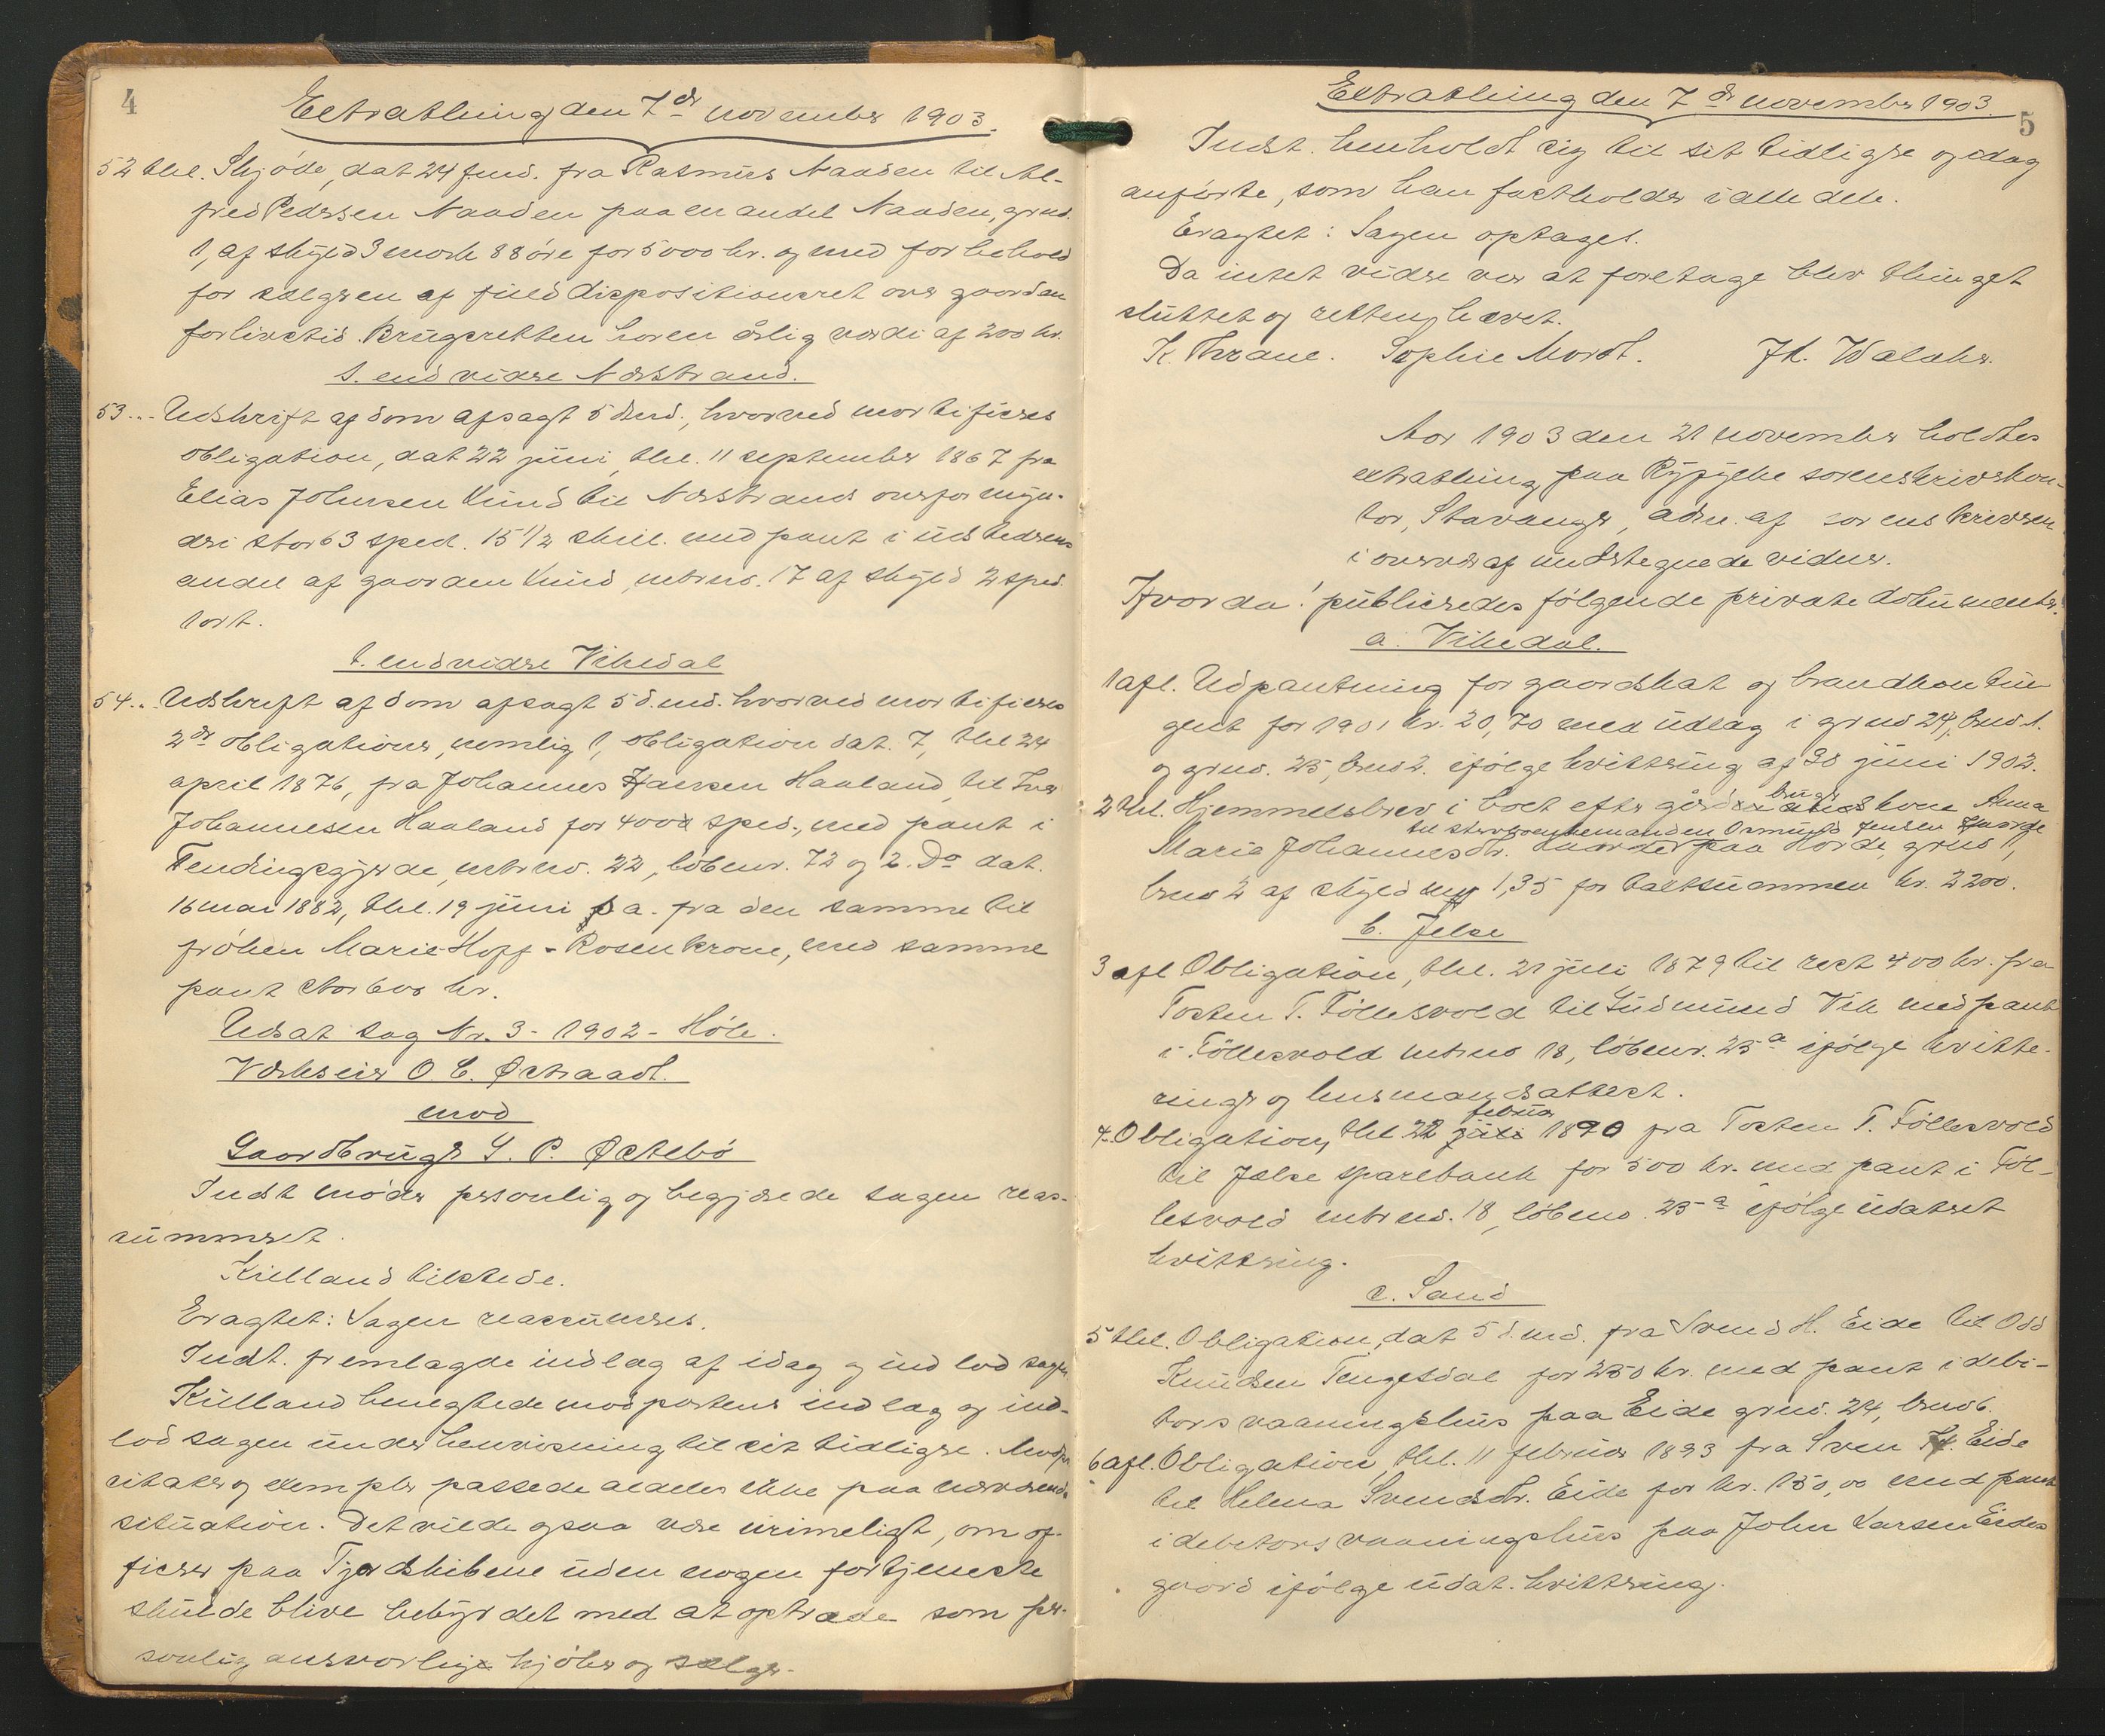 4
Extrathing den 7de november 1903.
52 thl. Skjöde, dat 24 f.md. fra Rasmus Naaden til Al-
fred Pedersen Naaden paa en andel Naaden, grno.
1, af skyld 3 mark 88 öre for 5000 kr. og med forbehold
for sælgeren af fuld dispositionsret over gaarden
for livstid. Brugsretten har en årlig værdi af 200 kr.
s. endvidre Nerstrand.
53... Udskrift af dom afsagt 5 dsmd., hvorved mortificeres
obligation, dat 22 juni, thl. 11 september 1867 fra
Elias Johnsen Vind til Nerstrands overformyn-
deri stor 63 sped. 15 1/2 skill. med pant i udstederens
andel af gaarden Vind, mtrno. 17 af skyld 2 sped.
1 ort.
t. endvidre Vikedal
54... Udskrift af dom afsagt 5 d.md. hvorved mortificeres
2de obligationer, nemlig 1, obligation dat. 7, thl 24
april 1876, fra Johannes Hansen Haaland til Iver
Johannesen Haaland for 400 sped., med pant i
Fendingsgjerde, mtrno. 22, löbenr. 72 og 2. Do dat.
16 mai 1882, thl. 19 juni s. a. fra den samme til
fröken Marie Hopp-Rosenkrone, med samme
pant stor 600 kr.
Udsat sag Nr. 3 - 1902 - Höle.
Værkseier O. C. Østraadt.
mod
Gaardbruger S. P. Østebö
Indst möder personlig og begjærede sagen reas-
sumeret.
Kielland tilstede.
Eragtet: Sagen reassumeres.
Indst. fremlagde indlæg af idag og indlod sagen
Kielland benegtede modpartens indlæg og ind-
lod sagen under henvisning til sit tidligre. Modp.
citater og exempler passede aldeles ikke paa nærværende
situation. Det vilde ogsaa være urimeligt, om of-
ficerer paa Fjordskibene uden nogen fortjeneste
skulde blive bebyrdet med at optræde som per-
sonlig ansvarlige kjöber og sælger.
Extrathing den 7de november 1903.
5
Indst. henholdt sig til sit tidligre og idag
anförte, som han fastholder i alle dele.
Eragtet: Sagen optages.
Da intet vidre var at foretage blev thinget
sluttet og retten hævet.
K. Thrane. Sophie Mordt. Jk. Walder.
Aar 1903 den 21 november holdtes
extrathing paa Ryfylke sorenskriverkon-
tor, Stavanger, adm. af sorenskriveren
i overvær af undertegnede vidner.
Hvorda! publiceredes fölgende private dokumenter.
a. Vikedal.
1 afl. Udpantning for gaardskat og brandkontin-
gent for 1901 kr. 20,70 med udlæg i grno 24, brno 1.
og grno. 25, brno 2. ifölge kvittering af 30 juni 1902.
2 thl. Hjemmelsbrev i boet efter gård bruger kone Anna
til stervboenkemanden Ormund Jensen Hjorde
Marie Johannesdtr. paa Hörde, grno 11,
brno 2 af skyld mrk 1,35 for takstsummen kr. 2200.
b. Jelse
3 afl Obligation, thl. 21 juli 1879 til rest 400 kr. fra
Tosten T. Föllesvold til Gudmund Vik med pant
i Föllesvold mtrno 18, löbenr. 25a ifölge kvitte-
ringe og lensmandsattest.
februar
4.. Obligation, thl 22 juli 1890 fra Tosten T. Föllesvold
til Jælse sparebank for 500 kr. med pant i Föl-
lesvold mtrno. 18, löbeno. 25a ifölge udateret
kvittering.
c. Sand
5 thl. Obligation, dat 5 d.md. fra Svend H. Eide til Odd
Knudsen Tengesdal for 250 kr. med pant i debi-
tors vaaningshus paa Eide grno. 24, brno 6.
6 afl. Obligation, thl. 11 februar 1893 fra Sven H. Eide
til Helena Svendsdtr. Eide for kr. 150,00 med pant
i debitors vaaningshus paa John Larsen Eides
gaard ifölge udat. kvittering.